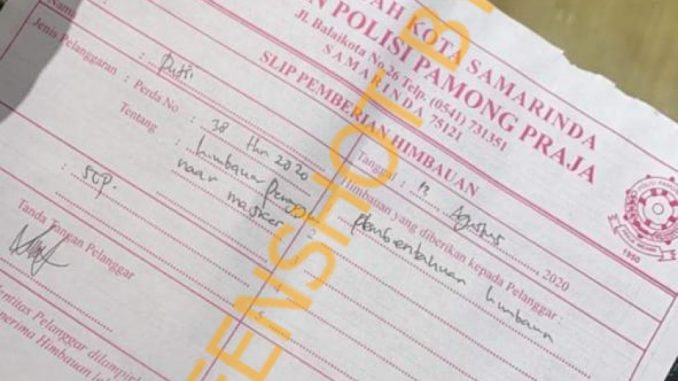 AH KOTA SAMARINDA
AN POLISI PAMONG PRAJA
Jl. Balaikota No.26 Telp. (0541) 731351
SAMARINDA 75121
SLIP PEMBERIAN HIMBAUAN
Nama
: Putri
Jenis Pelanggaran
: Perda No : 38 thn 2020
Tentang :
masker
: SCP.
Tanggal : Agustus 2020
Himbauan yang diberikan kepada Pelanggar :
1 Pemberitahuan himbauan
2
4
5
Tanda Tangan Pelanggar
entitas Pelanggar dilampir
enerima Himbauan
1950
ENSHOT B